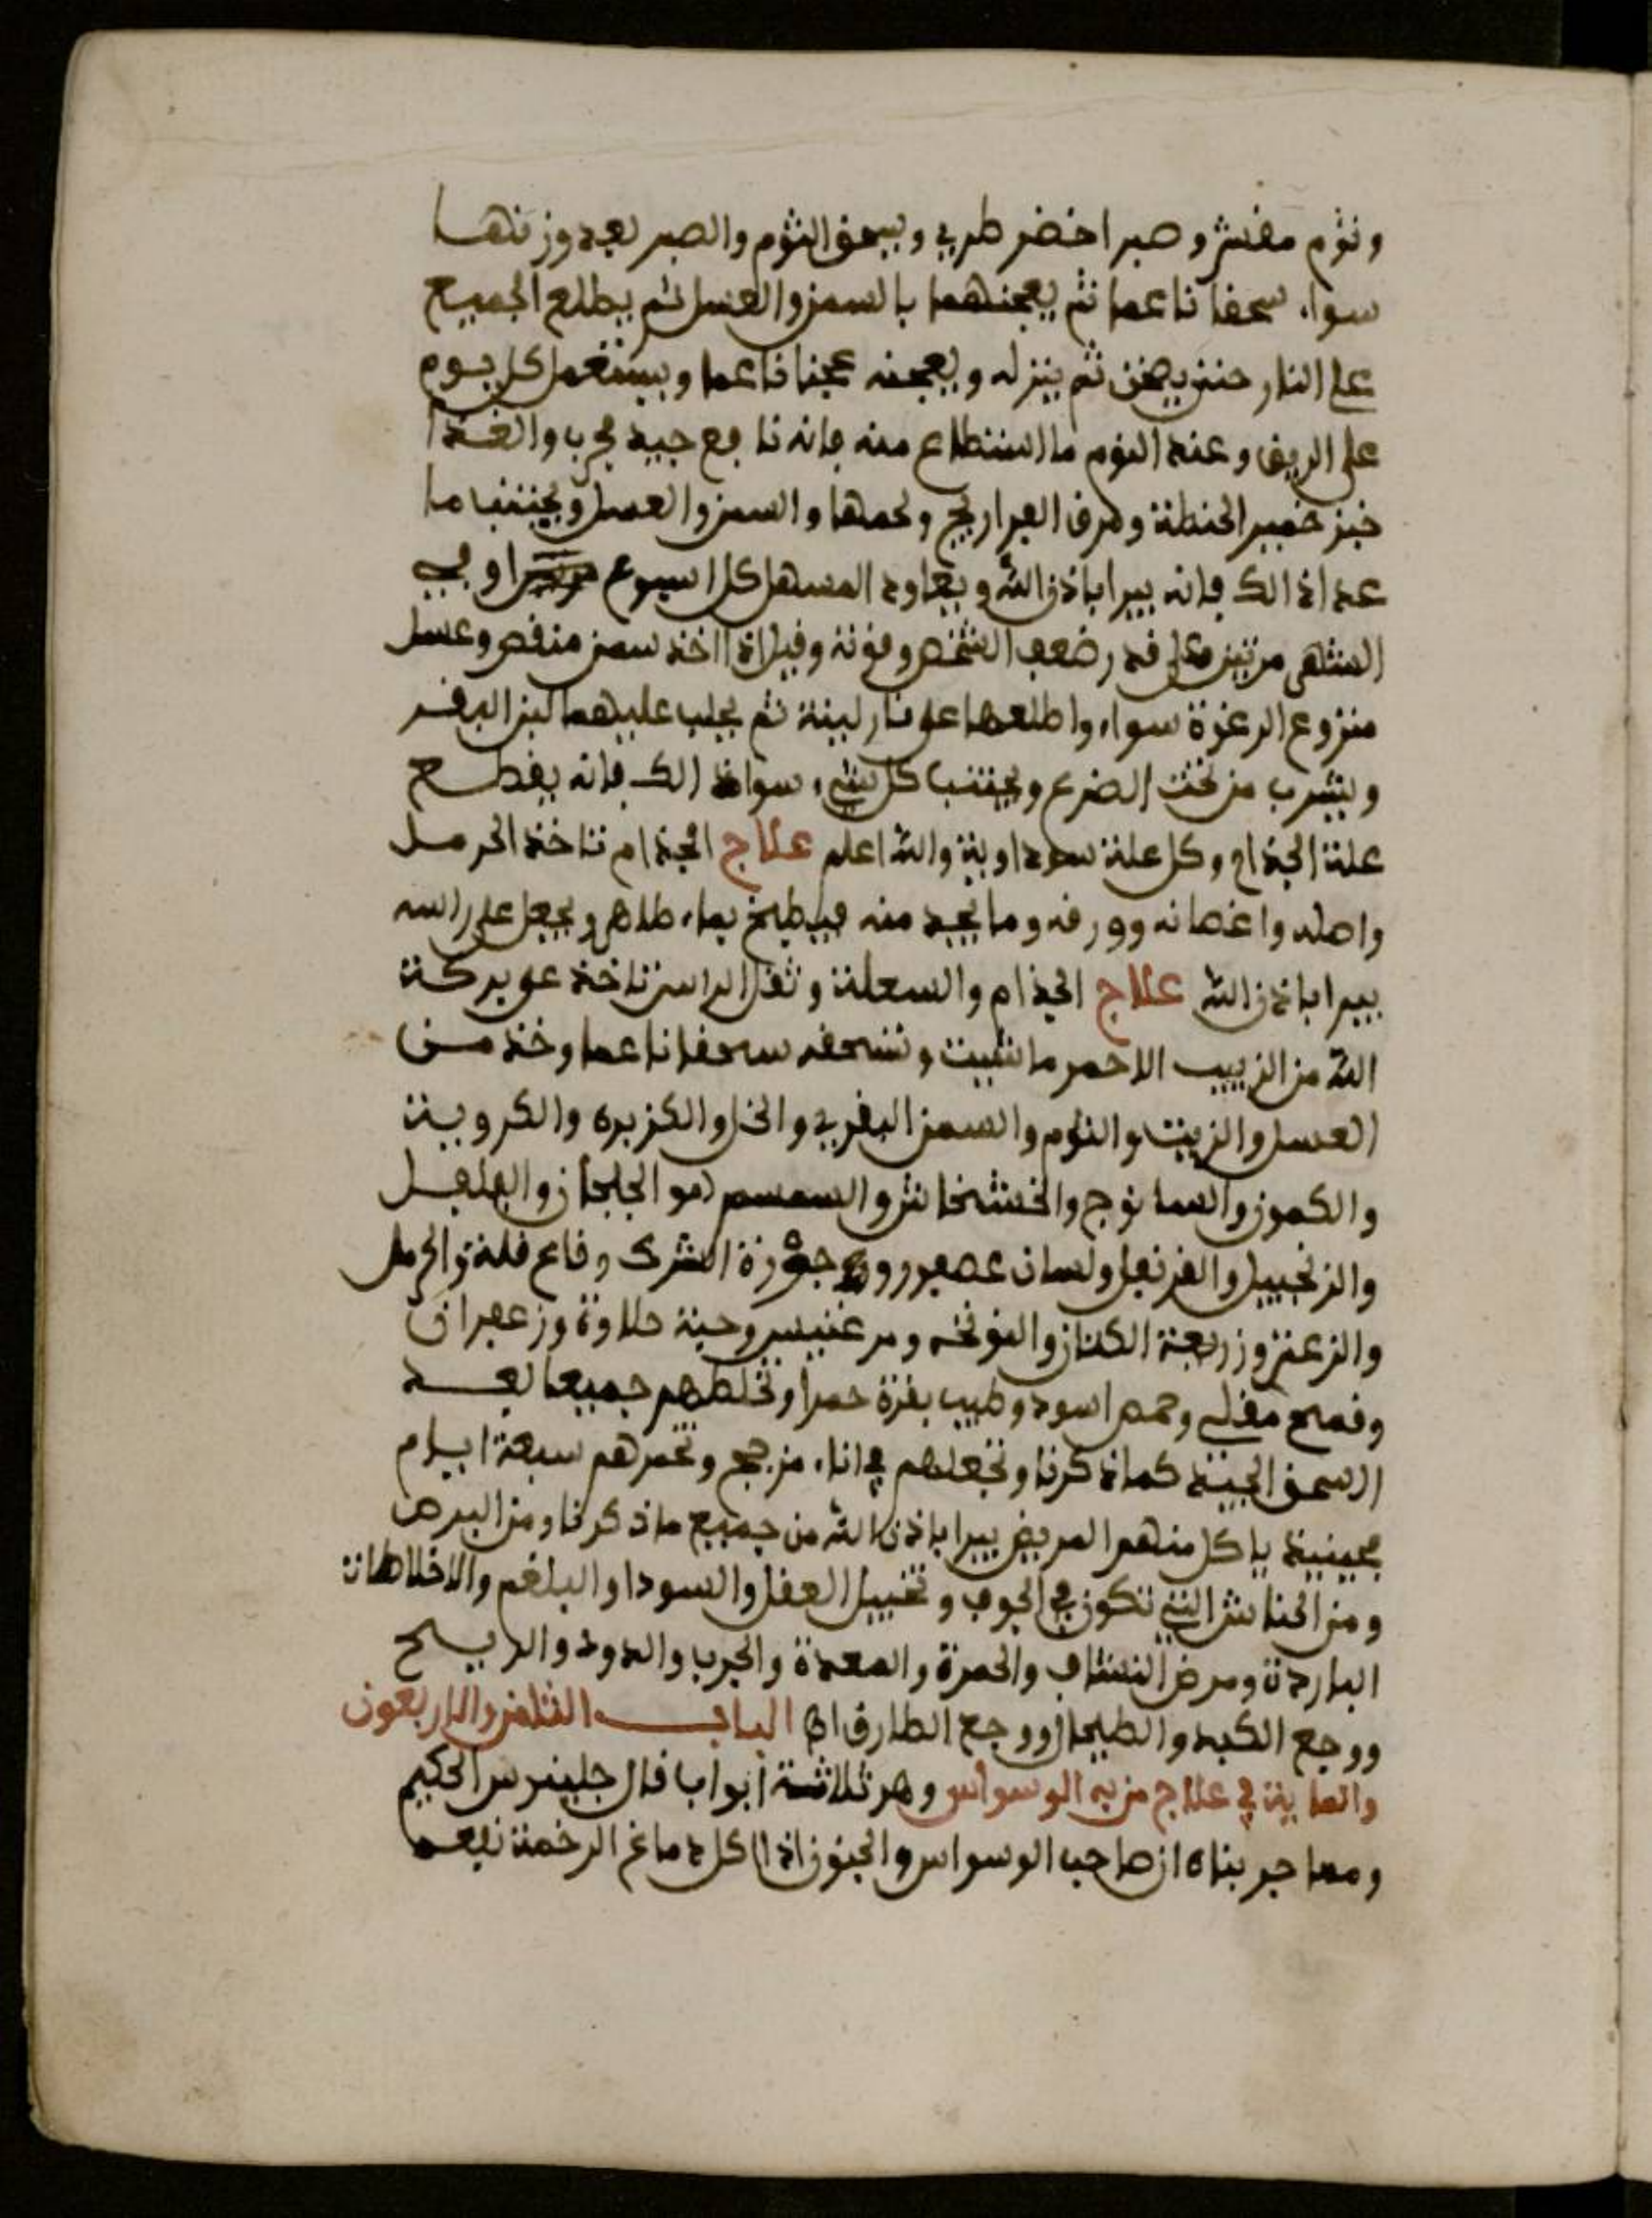 وثوم مقشر وصبر اخضر طري ويسحق الثوم والصبر بعد وزنهما
سواء سحقا ناعما ثم يعجنهما بالسمن والعسل ثم يطلع الجميع
على النار حتى يصخن ثم ينزله ويعجنه عجنا ناعما ويستعمل كل يوم
على الريق وعند النوم ما استطاع منه فانه نافع جيد مجرب والغذا
خبز خمير الحنطة ومرق الفراريج ولحمها والسمن والعسل ويجتنب ما
عدا ذالك فانه يبرا باذن الله ويعاود المسهل كل اسبوع او في
الشهر مرتين على قدر ضعف الشخص وقوته وقيل اذا اخذ سمن منقص وعسل
منزوع الرغوة سواء واطلعها على نار لينة ثم يحلب عليهما لبن البقر
ويشرب من تحت الضرع ويجتنب كل شيء سوا ذالك فانه يقطع
علة الجذام وكل علة سوداوية والله اعلم علاج الجذام تاخذ الحرمل
واصله واغصانه وورقه وما يجد منه فيطبخ بماء طاهر ويجعل على راسه
يبرا باذن الله علاج الجذام والسعلة وثقل الراس تاخذ على بركة
الله من الزبيب الاحمر ما شيت وتسحقه سحقا ناعما وخذ من
العسل والزيت والثوم والسمن البقري والخل والكزبره والكروية
والكمون والسانوج والخشخاش والسمسم هو الجلجلان والفلفل
والزنجبيل والقرنفل ولسان عصفور وجوزة الشرك وقاع قلة والحرمل
والزعتر وزريعة الكتان والنونخه ومرغنيس وحبة حلاوة وزعفران
وقمح مقلي وحمص اسود وطيب بقرة حمرا وتخلطهم جميعا بعد
السحق الجيد كما ذكرنا وتجعلهم في اناء مزجج وتخمرهم سبعة ايام
فحينيذ ياكل منهم المريض يبرا باذن الله من جميع ما ذكرنا ومن البرص
ومن الحناش التي تكون في الجوف وتخييل العقل والسودا والبلغم والاخلاطات
الباردة ومرض النشاف والحمرة والمعدة والجرب والدود والريح
ووجع الكبد والطيحان ووجع الطارق اه البـاب الثامن والاربعون
والماية في علاج من به الوسواس وهو ثلاثة ابواب قال جلينوس الحكيم
ومما جربناه ان صاحب الوسواس والجنون اذا اكل دماغ الرخمة نفعه